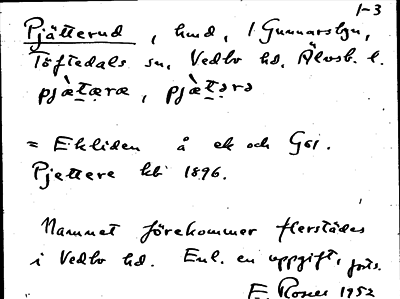 1-3
Pjätterud, hmd, i Gunnarsbyn,
Töftedals sn, Vedbo hd, Älvsb. l.
pjæ̀t̠æ̣ræ, pjæ̀t̠ərə
= Ekliden å ek och Gsi.
Pjettere kb 1896.
Namnet förekommer flerstädes
i Vedbo hd. Enl. en uppgift, forts.
E. Rosell 1952